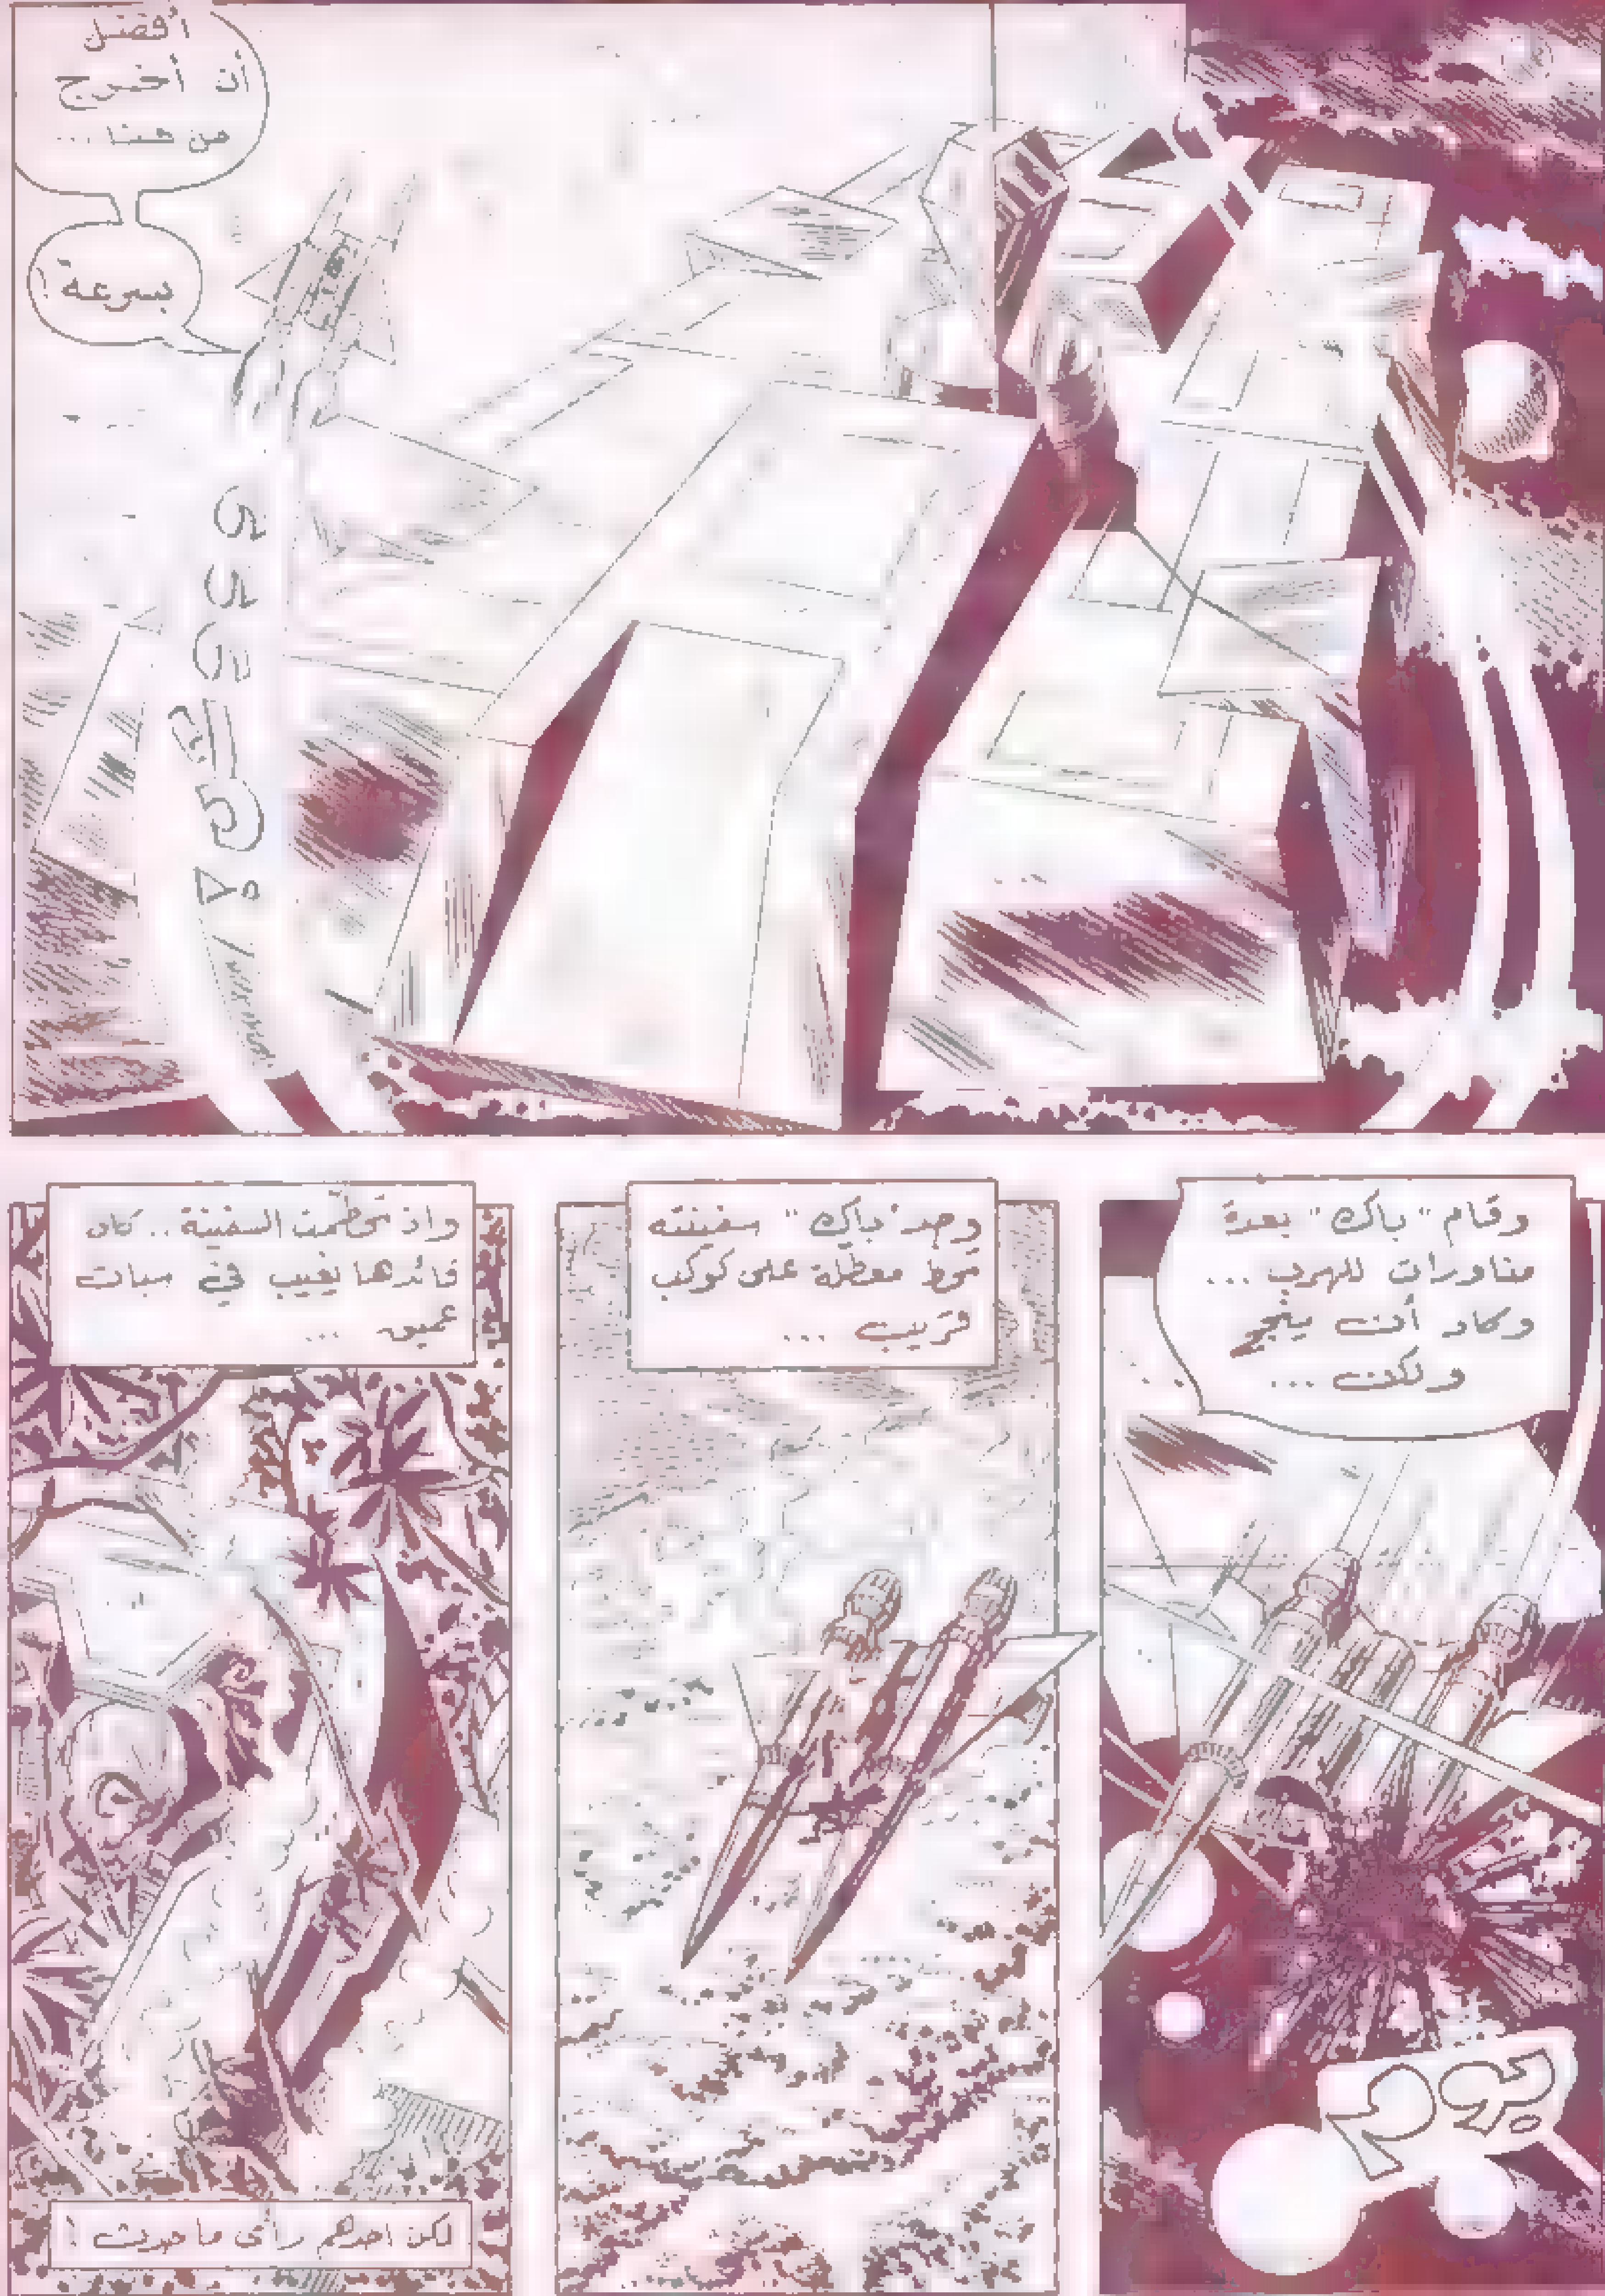 أفضل
أن أخرج
من هنا ...
بسرعة !
وقام "باك" بعدة
مناورات للهرب ...
وكاد أن ينجو
ولكن ...
بوم
وجد "باك" سفينته
تحط معطلة على كوكب
قريب ...
واذ تحطمت السفينة .. كان
قائدها يغيب في سبات
عميق ...
لكن احدهم رأى ما حدث !